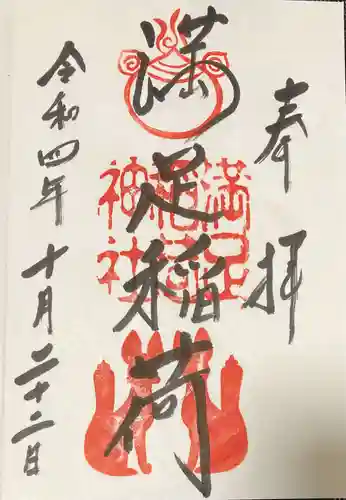 奉拝
満足稲荷
満足稲荷神社
令和四年十月二十二日